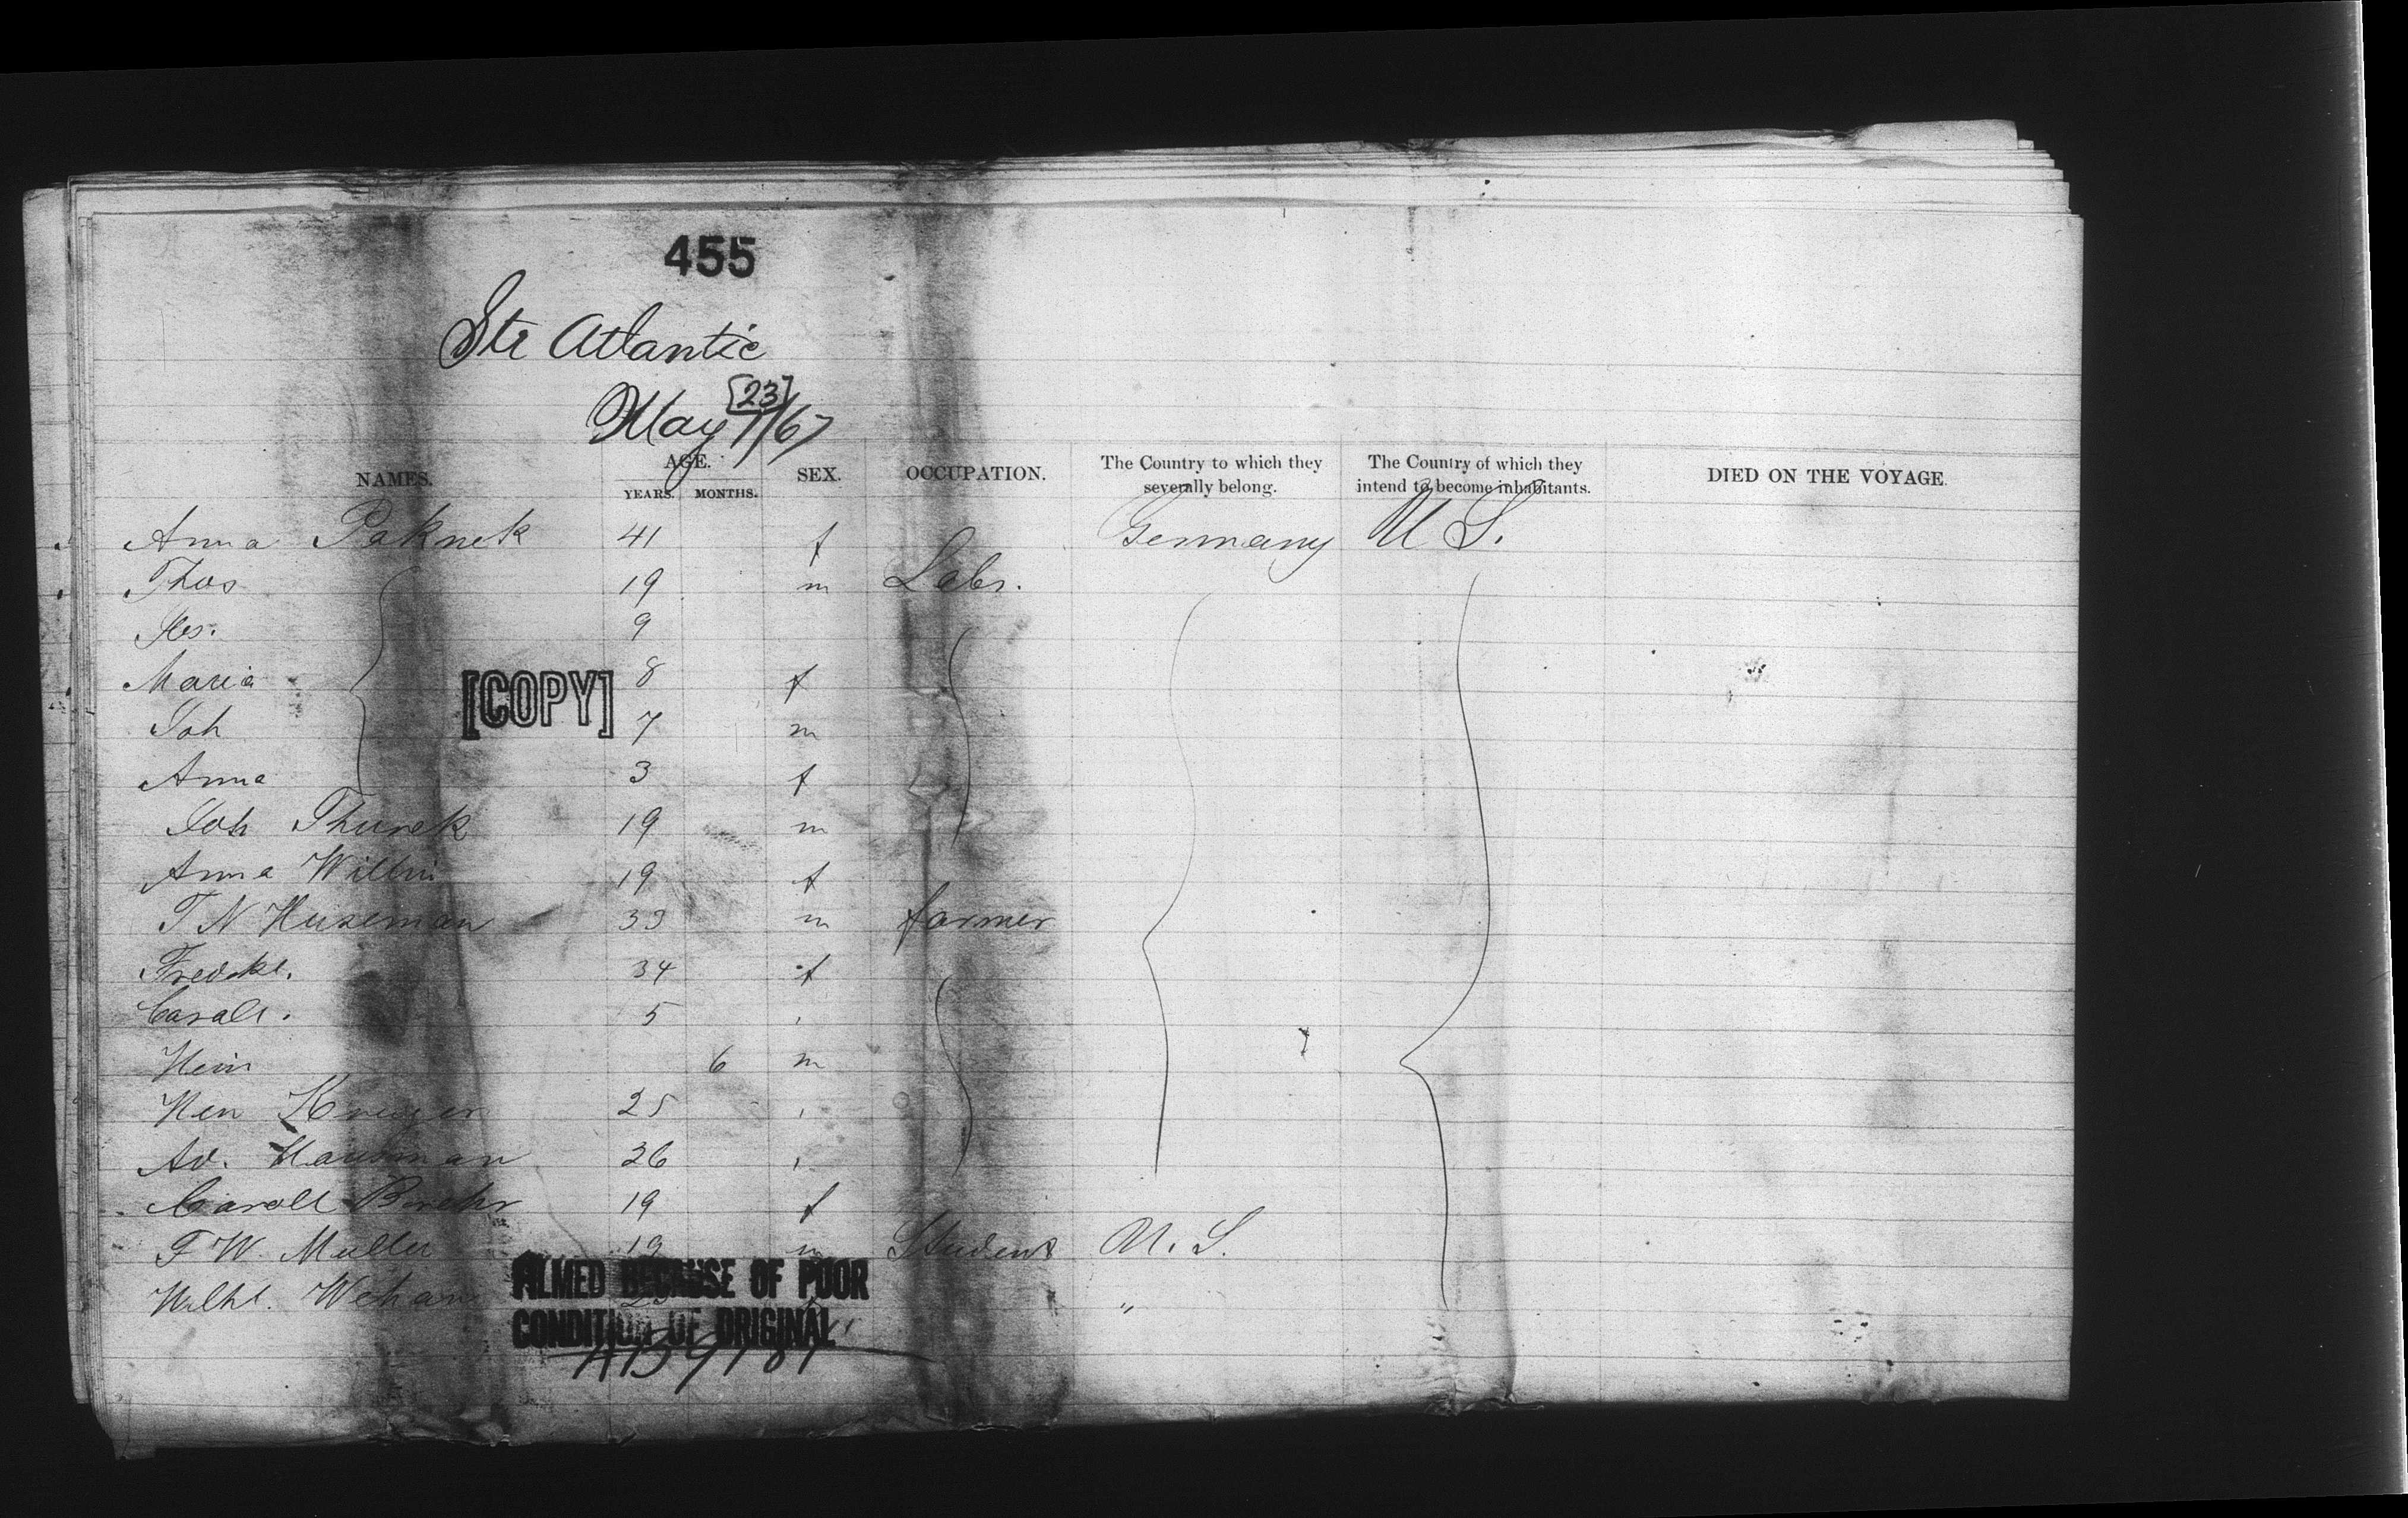 455
Str Atlantic
[23]
May 7/67
NAMES. AGE. YEARS. MONTHS. SEX. OCCUPATION. The Country to which they severally belong. The Country of which they intend to become inhabitants. DIED ON THE VOYAGE.
Anna Paknek 41 f Germany U S.
Thos 19 m Labr.
Jos. 9
Maria 8 f
[COPY]
Joh 7 m
Anna 3 f
Joh Thurek 19 m
Anna 19 f
T N Huseman 33 m farmer
Fredke. 34 f
Caroll. 5 "
Hein 6 m
Hen Kruger 25 "
Ad. Hausman 26 "
Caroll 19 f
F W. Muller 19 m Student U. S.
Wilhl. "
FILMED BECAUSE OF POOR
CONDITION OF ORIGINAL